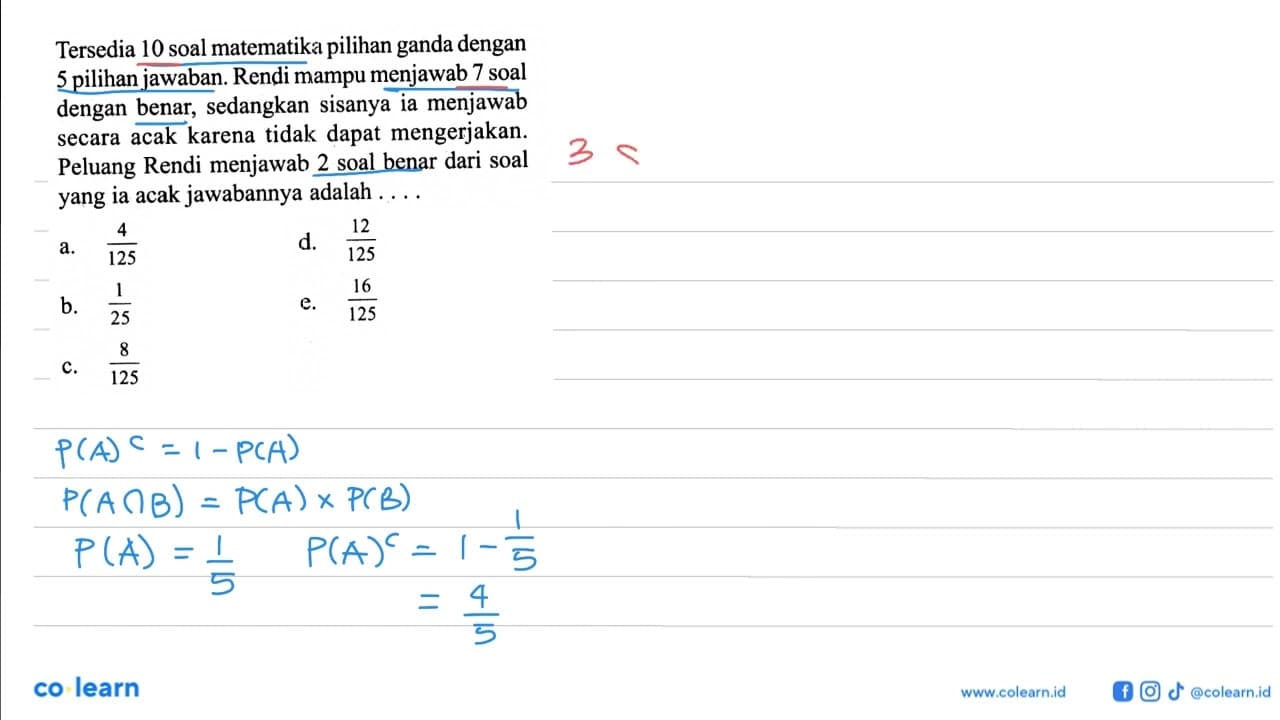 Tersedia 10 soal matematika pilihan ganda dengan
5 pilihan jawaban. Rendi mampu menjawab 7 soal
dengan benar, sedangkan sisanya ia menjawab
secara acak karena tidak dapat mengerjakan.
Peluang Rendi menjawab 2 soal benar dari soal
yang ia acak jawabannya adalah . . . .
a. 4/125
b. 1/25
c. 8/125
d. 12/125
e. 16/125
3 S
P(A)ᶜ = 1 - P(A)
P(A∩B) = P(A) × P(B)
P(A) = 1/5 P(A)ᶜ = 1 - 1/5
= 4/5
co learn
www.colearn.id
@colearn.id